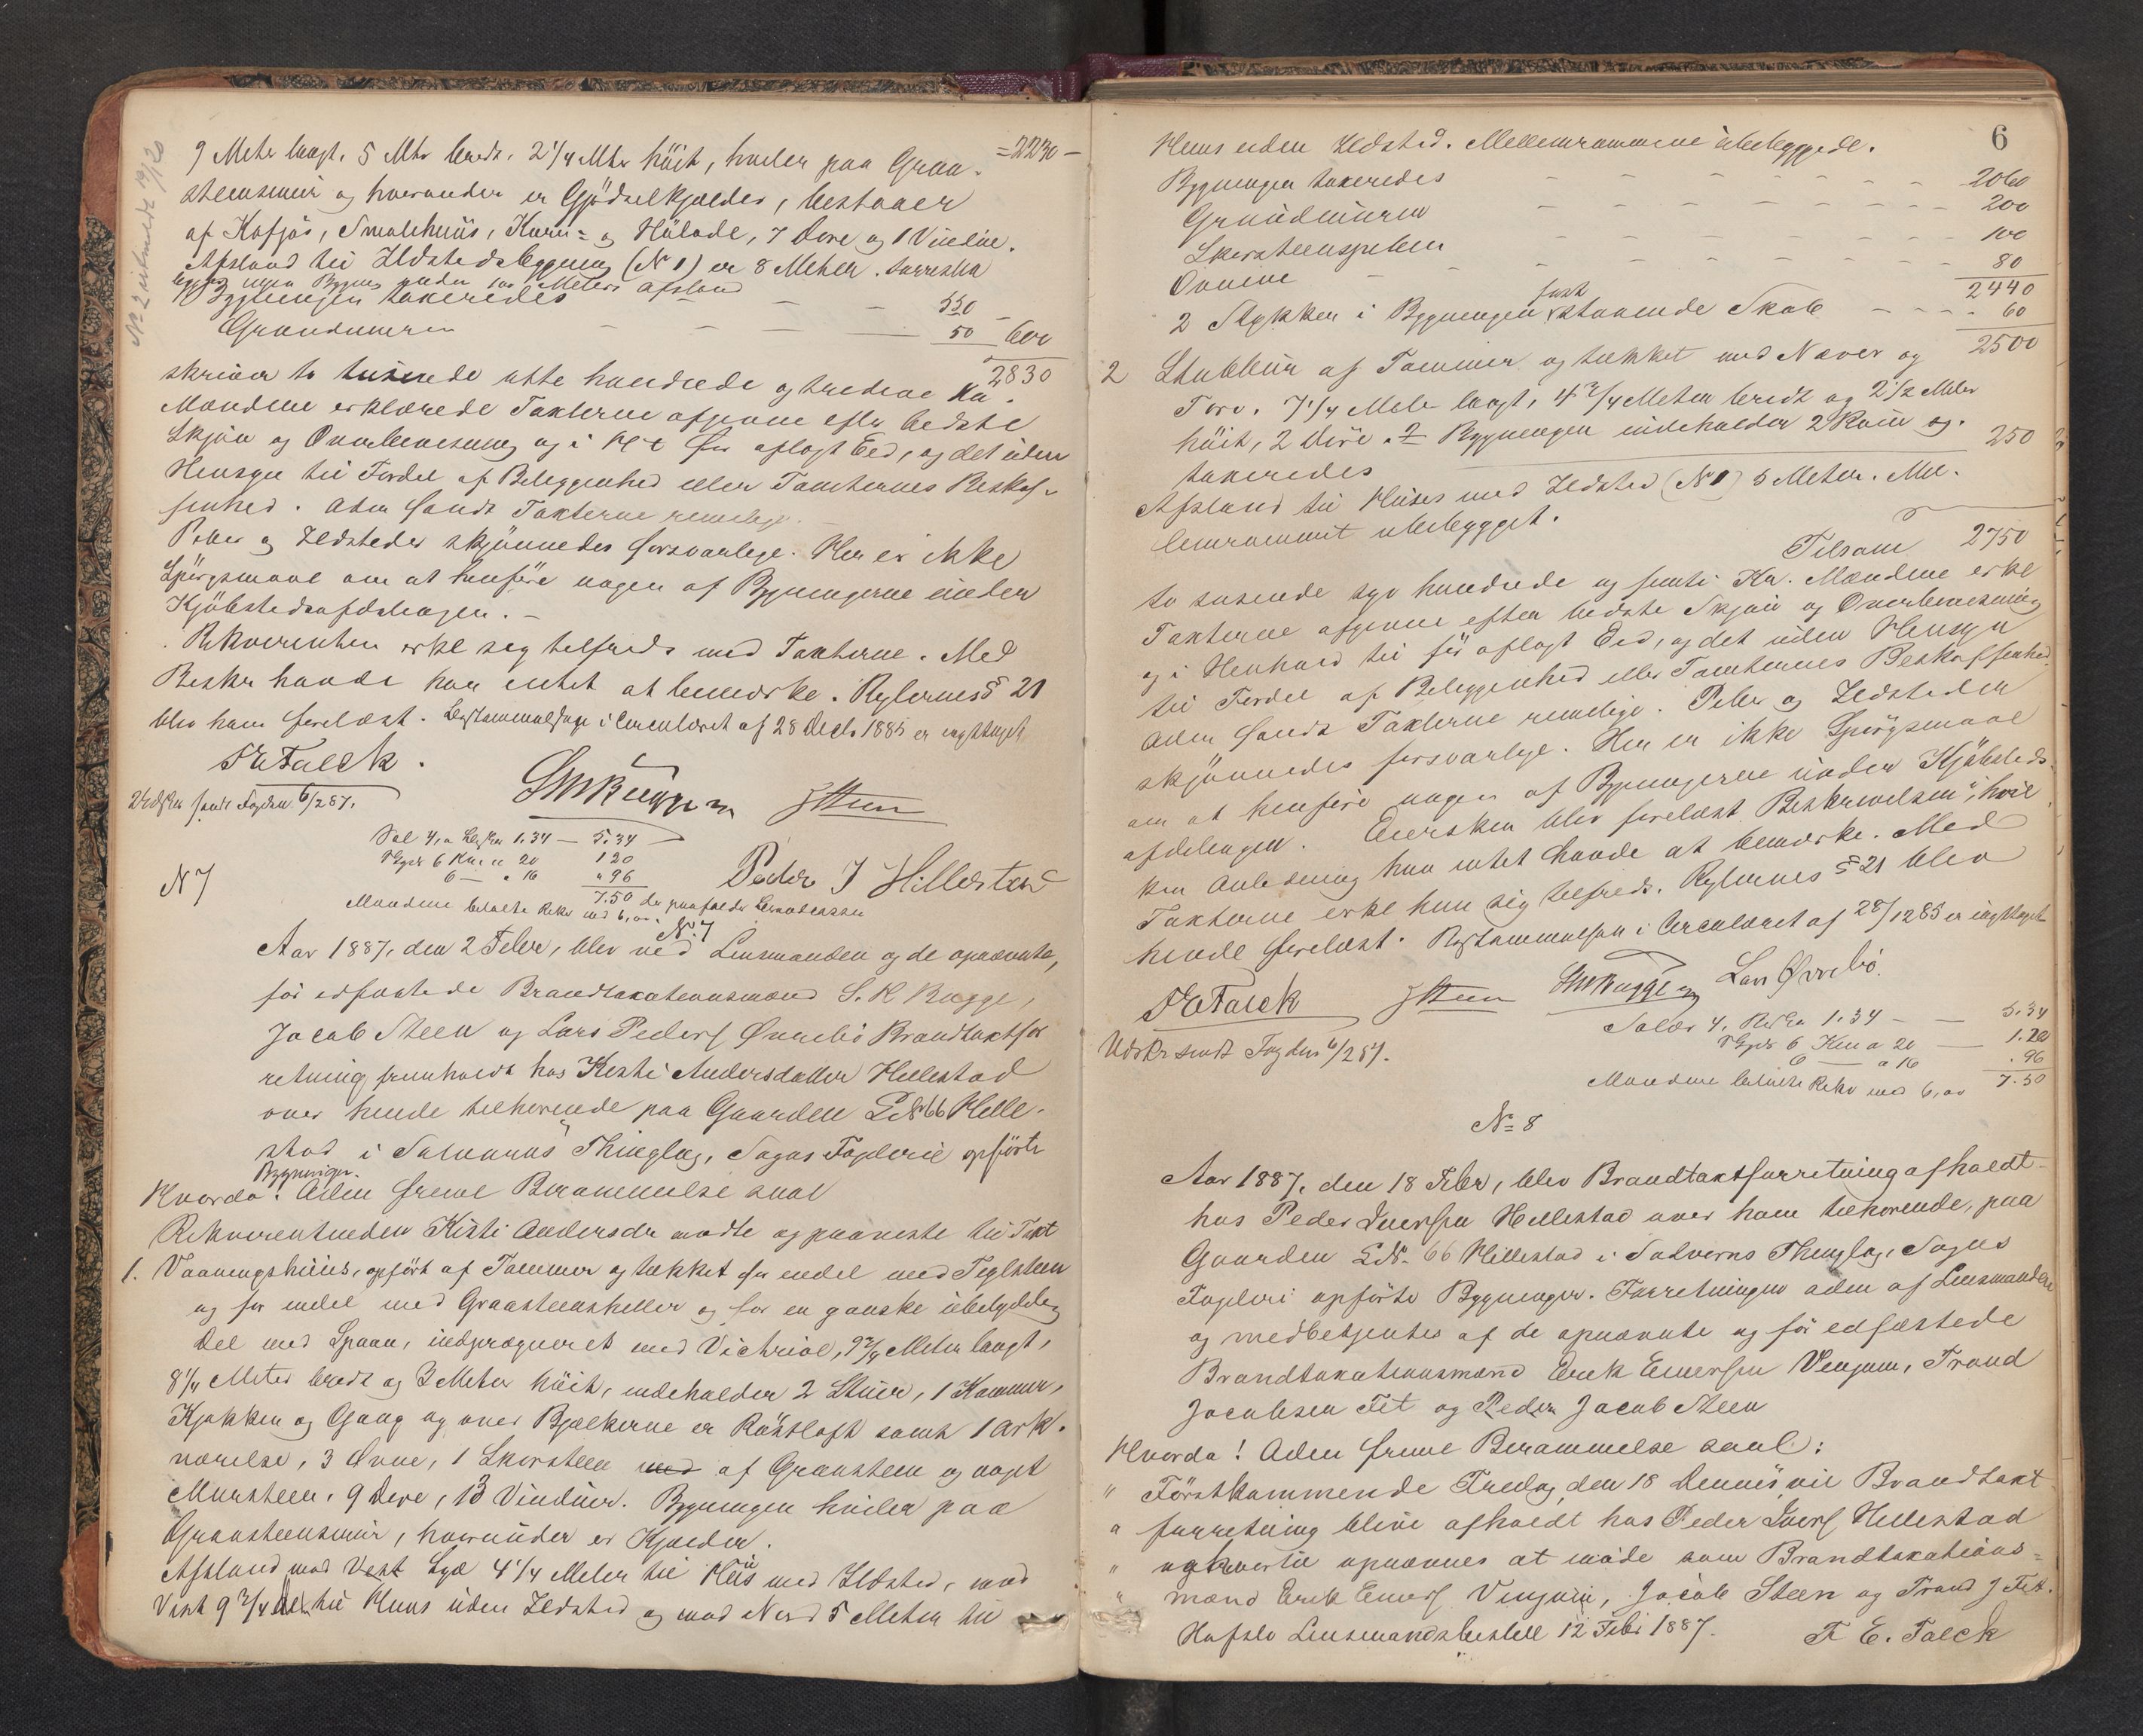 9 Meter langt, 5 Mtr bredt, 2 1/4 Mtr höit, hviler paa Graa- =2230-
steensmuur og hvorunder er Gjödselkjelder, bestaaer
af Kofjøs, Smalehuus, Korn- og Hölade, 7 Döre og 1 Vindue.
Afstand til Ildstedsbygning (No 1) er 8 Meter.
No 2 10/20
Bygningen taxeredes — — — 550 -
Grundmuren — — — 50 600
2830
skriver to tusinde otte hundrede og tredive Kr.
Mændene erklærede Taxterne afgivne efter bedste
Skjön og Overbeviisning og i för aflagt Eed, og det uden
Hensyn til Fordel af Beliggenhed eller Tomternes Beskaf-
fenhed. Adm fandt Taxterne rimelige.
Piber og Ildsteder skjönnedes forsvarlige. Her er ikke
Spörgsmaal om at henföre nogen af Bygningerne under
Kjöbstedsafdelingen. -
Rekvirenten erkl sig tilfreds med Taxterne. Med
Beskr havde han intet at bemærke. Reglernes § 21
blev ham forelæst. Bestemmelsen i Circulæret af 28 Decbr 1885 er iagttaget
F E Falck. SKRugge JSteen
Udskr sendt Fogden 6/2 87.
Sal 4, a Beskr 1.34 — 5.34
6 Km a 20 1 20
6 — " 16 " 96
7.50
Peder J Hillestad
Mændene betalte Rekv med 6,00.
N 7
No 7
Aar 1887, den 2 Febr, blev ved Lensmanden og de opnævnte,
för edfæstede Brandtaxationsmænd S. K Rugge,
Jacob Steen og Lars Peders Ørrebö Brandtaxtfor
retning fremholdt hos Kisti Andersdatter Hillestad
over hende tilhörende paa Gaarden LNo 66 Hille-
stad i Solvorns Thinglag, Sogns Fogderie opförte
Bygninger.
Hvorda! Adm frem Berammelse saal
Rekvirentinden Kisti Andersdr mødte og paaviste til Taxt
1. Vaaningshuus, opfört af Tömmer og tækket for endel med Teglsteen
og for endel med Graasteensheller og for en ganske ubetydelig
Del med Spaan, indprægneret med Victriol, 9 3/4 Meter langt,
8 1/4 Meter bredt og 3 Meter höit, indeholder 2 Stuer, 1 Kammer,
Kjøkken og Gang og over Bjælkerne er Röstloft samt 1 Ark-
værelse, 3 Ovne, 1 Skorsteen med af Graasteen og noget
Muursteen, 9 Döre, 13 Vinduer. Bygningen hviler paa
Graasteensmuur, hvorunder er Kjælder.
Afstand mod Vest Syd 4 1/4 Meter til Huus med Ildsted, mod
Vest 9 3/4 Met til Huus uden Ildsted og mod Nord 5 Meter til
6
Huus uden Ildsted. Mellemrummene ubebyggede.
Bygningen taxeredes — — — 2060
Grundmuren — — — 200
Skorsteenspiben — — — 100
Ovnene — — — 80
2440
2 Stykker i Bygningen fast staaende Skab — — — 60
2500
2 Stabbuur af Tömmer og tækket med Næver og
Torv. 7 1/4 Meter langt, 4 3/4 Meter bredt og 2 1/2 Meter
höit, 2 Döre. Bygningen indeholder 2 Rum og
taxeredes — 250
Afstand til Huset med Ildsted (No 1) 5 Meter. Mel-
lemrummet ubebygget.
Tilsam 2750
to tusende syv hundrede og femti Kr. Mændene erkl
Taxterne afgivne efter bedste Skjön og Overbeviisning
og i Henhold til för aflagt Eed, og det uden Hensyn
til Fordel af Beliggenhed eller Tomternes Beskaffenhed.
Adm fandt Taxterne rimelige. Piber og Ildsteder
skjönnedes forsvarlige. Her er ikke Spörgsmaal
om at henföre nogen af Bygningerne under Kjöbsteds-
afdelingen. Eiersken blev forelæst Beskrivelsen, i hvil
ken Anledning hun intet havde at bemærke. Med
Taxterne erkl hun sig tilfreds. Reglernes § 21 blev
hende forelæst. Bestemmelsen i Circulæret af 28/12 85 er iagttaget
F E Falck JSteen SKRugge Lars Ørrebö.
Udskr sendt Fogden 6/2 87.
Salær 4, Beskr 1.34 — — 5.34
6 Km a 20 — 1.20
6 — a 16 . 96
Mændene betalte Rekv med 6,00 7.50
No 8
Aar 1887, den 18 Febr, blev Brandtaxtforretning afholdt
hos Peder Iversen Hillestad over ham tilhörende, paa
Gaarden LNo 66 Hillestad i Solvorns Thinglag, Sogns
Fogderi opförte Bygninger. Forretningen adm af Lensmanden
og medbetjentes af de opnævnte og för edfæstede
Brandtaxationsmænd Erik Eversen Venjum, Trond
Jacobsen Fet og Peder Jacob Steen
Hvorda! Adm frem Berammelse saal:
" Förstkommende Fredag, den 18 Dennes, vil Brandtaxt
" forretning blive afholdt hos Peder Ivers Hillestad
" og hvortil opnævnes at möde som Brandtaxations-
" mænd Erik Evers Venjum, Jacob Steen og Trond J Fet.
Hafslo Lensmandsbestill 12 Febr 1887. F E. Falck